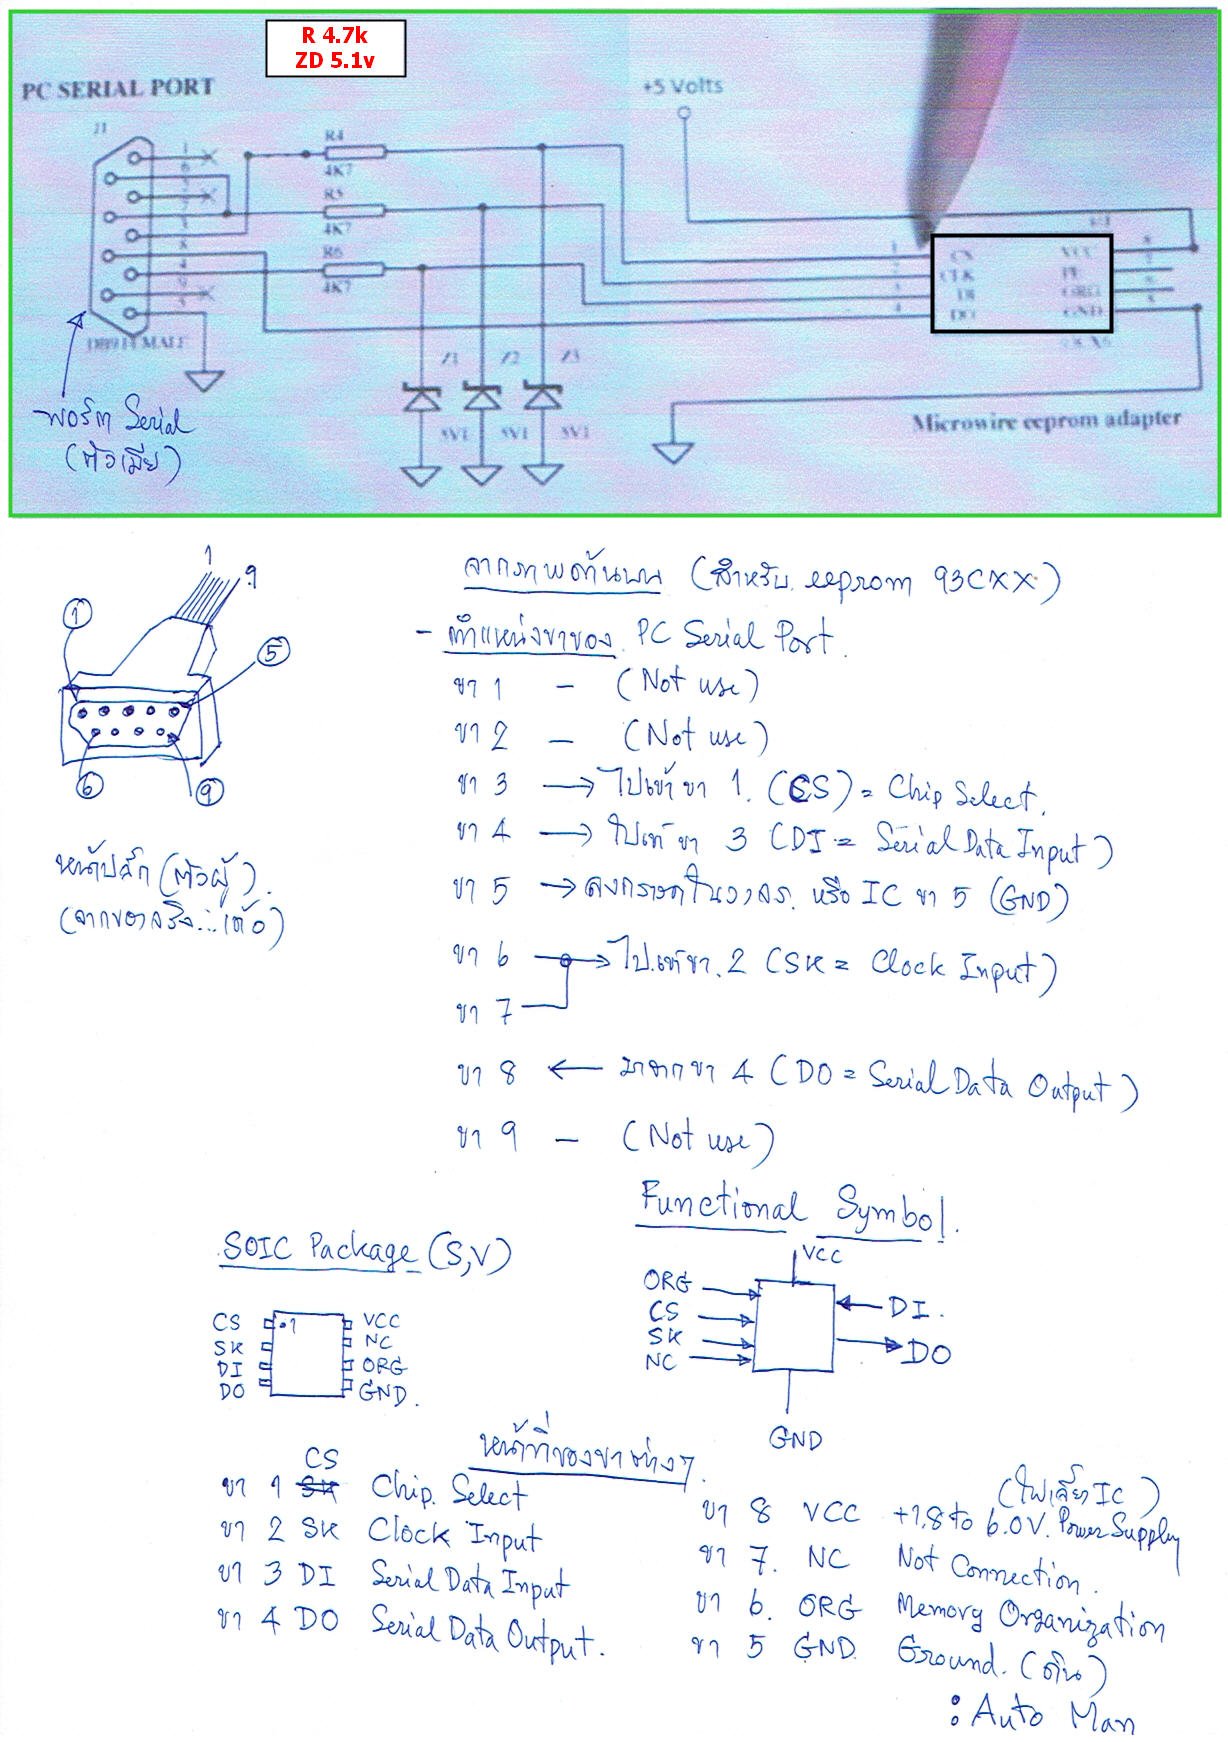 R 4.7k
ZD 5.1v
PC SERIAL PORT
+5 Volts
J1
1
6
2
7
3
8
4
9
5
R4
4K7
R5
4K7
R6
4K7
1
2
3
4
CS
CLK
DI
DO
VCC
PE
ORG
GND
8
7
6
5
Z1
Z2
Z3
5V1
5V1
5V1
MALE
Microwire eeprom adapter
พอร์ท Serial
(ตัวเมีย)
1
9
1
5
6
9
หน้าปลั๊ก (ตัวผู้).
(จากของจริง...
จากภาพด้านบน (สำหรับ. eeprom 93CXX.)
- ตำแหน่งขาของ. PC Serial Port.
ขา 1 - (Not use)
ขา 2 - (Not use)
ขา 3 → ไปเข้า ขา 1. (CS) = Chip Select.
ขา 4 → ไปเข้า ขา 3 (DI = Serial Data Input)
ขา 5 → ลงกราวด์ในวงจร. หรือ IC ขา 5 (GND)
ขา 6 → ไป.เข้าขา. 2 (SK = Clock Input)
ขา 7
ขา 8 ← มาจากขา 4 (DO = Serial Data Output)
ขา 9 - (Not use)
Functional Symbol.
VCC
ORG
CS
SK
NC
DI.
DO
GND
SOIC Package (S,V)
CS
SK
DI
DO
1
VCC
NC
ORG
GND.
หน้าที่ของขาต่างๆ.
CS
ขา 1 SK Chip. Select
ขา 2 SK Clock Input
ขา 3 DI Serial Data Input
ขา 4 DO Serial Data Output.
(ไฟเลี้ยง IC)
ขา 8 VCC +1.8 to 6.0V. Power Supply
ขา 7. NC Not Connection.
ขา 6. ORG Memory Organization
ขา 5 GND. Ground. (ดิน)
: Auto Man